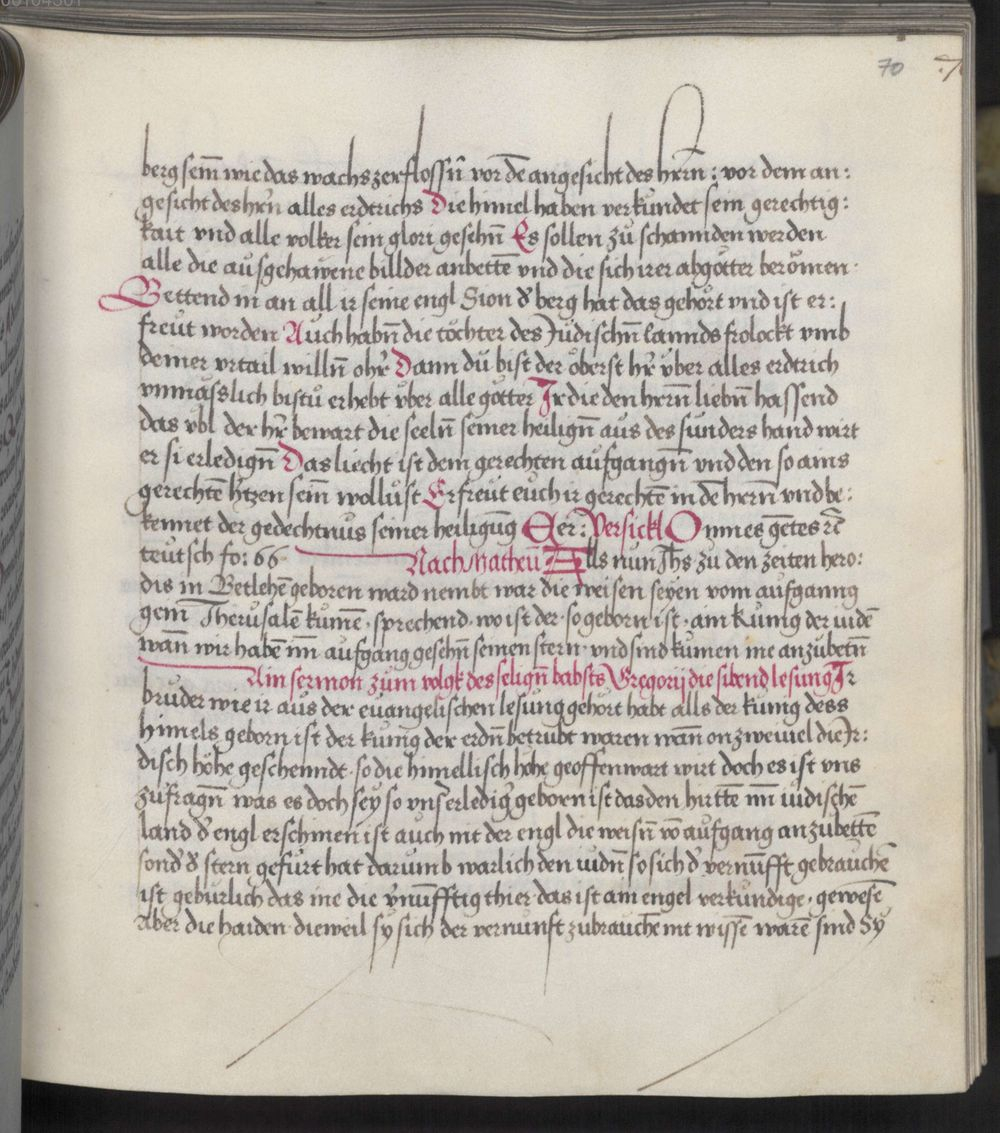 70
berg sein̄ wie das wachs zerflossn̄ vor dē angesicht des hrn̄ : vor dem an:
gesicht des hrn̄ alles erdtrichs Die himel haben verkündet sein gerechtig:
kait vnd alle volker sein glori gesehn̄ Es sollen zu schannden werden
alle die ausgehawene billder anbettē vnd die sich irer abgötter berömen ·
Bettend in an all ir seine engl Sion d' berg hat das gehört vnd ist er:
freüt worden Auch habn̄ die töchter des Jüdischn̄ lannds frolockt vmb
deiner vrtail willn̄ o hr̄ Dann dü bist der öberst hr̄ vber alles erdtrich
vnmässlich bistu erhebt vber alle götter Ir die den herrn̄ liebn̄ hassend
das vbl der hr̄ bewart die seeln̄ seiner heilign̄ aus des sünders hand wirt
er si erledign̄ Das liecht ist dem gerechten aufgangn̄ vnd den so ains
gerechtē h'tzen sein̄ wollust Erfreüt euch ir gerechtē in dē herrn̄ vnd be:
kennet der gedechtnüs seiner heiligūg Ser: Versickl Omnes gētes rē
teütsch fo: 66 Nach Matheū Alls nun Jhs zu den zeiten hero:
dis in Betlehē geboren ward nembt war die weisen seyen vom aufganng
gein̄ Jherusalē kumē · sprechend · wo ist der · so geborn ist · ain Kunig der iudē
wan̄ wir habē im̄ aufgang gesehn̄ seinen stern · vnd sind kumen ine anzubetn̄
Ain sermon zum volgk des selign̄ babsts Gregorij die sibend lesung Ir
bruder wie ir aus der euangelischen lesung gehört habt alls der kunig dess
himels geborn ist der kunig der erdn̄ betrübt waren wan̄ on zweiuel die Ir:
disch höhe geschenndt · so die himellisch höhe geoffenwart wirt doch es ist vns
zufragn̄ was es doch sey so vns' erledig' geborn ist das den hirttē im̄ iüdischē
land d' engl erschinen ist auch nit der engl die weisn̄ vō aufgang anzubettē
sond' d' stern gefürt hat darumb warlich den iudn̄ so sich d' vernūfft gebrauchē
ist gebürlich das ine die v'nūfftig thier das ist ain engel verkündige · gewesē
Aber die haiden · dieweil sy sich der vernunft zubrauchē nit wissē warē sind Sy